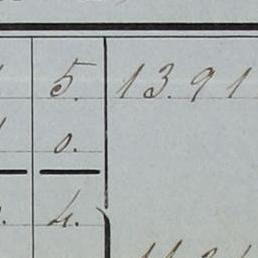 5. 13.91
0.
4.